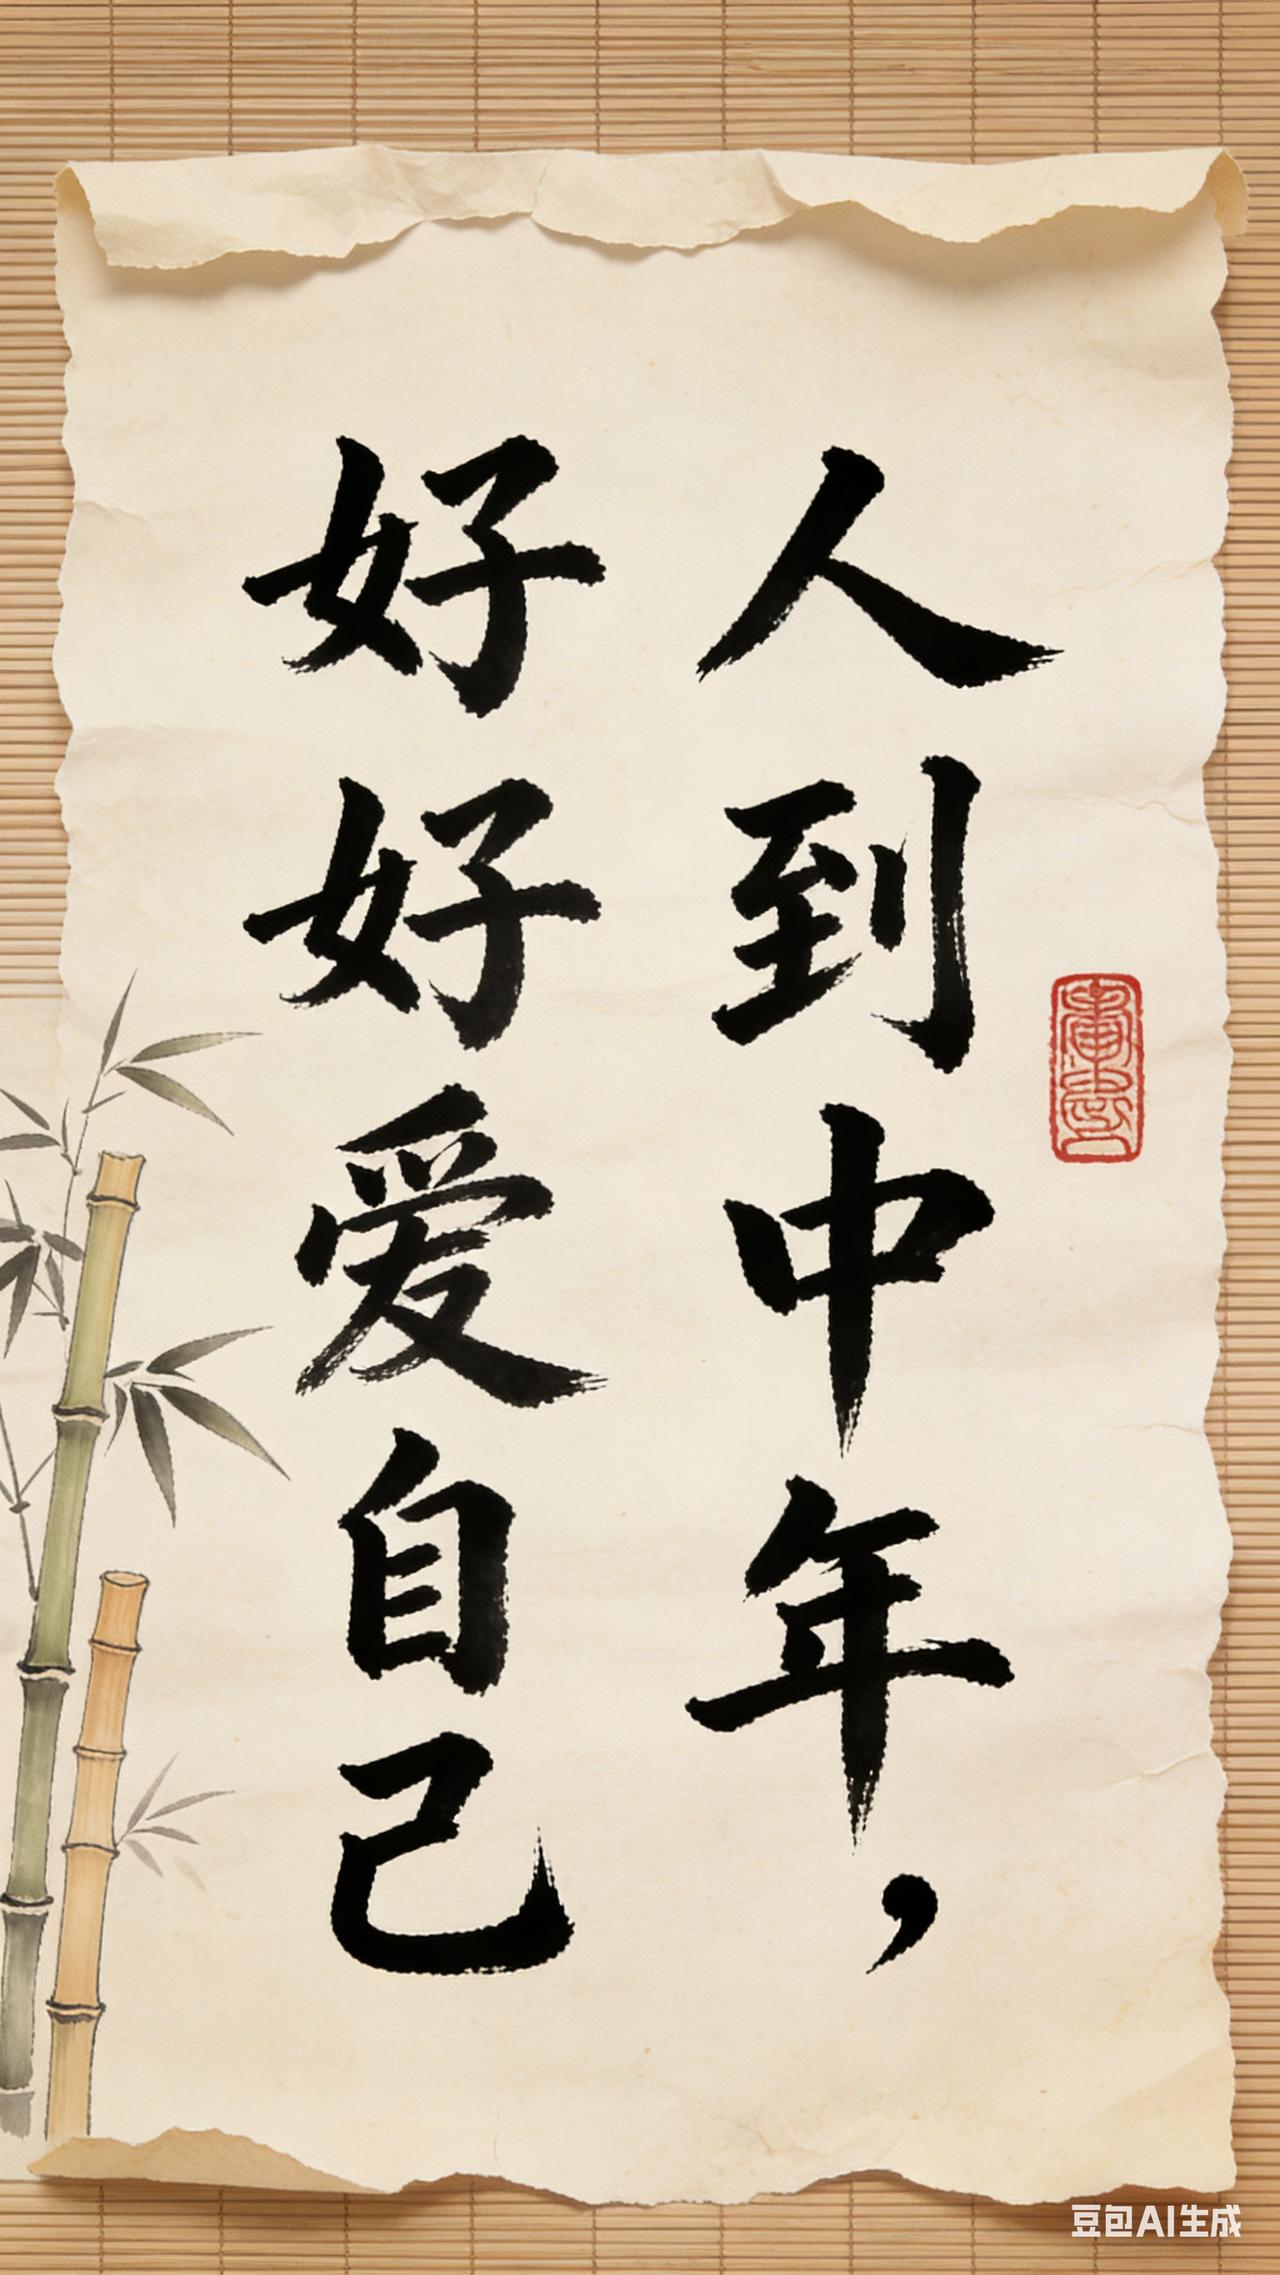 人到中年，
好好爱自己
豆包AI生成